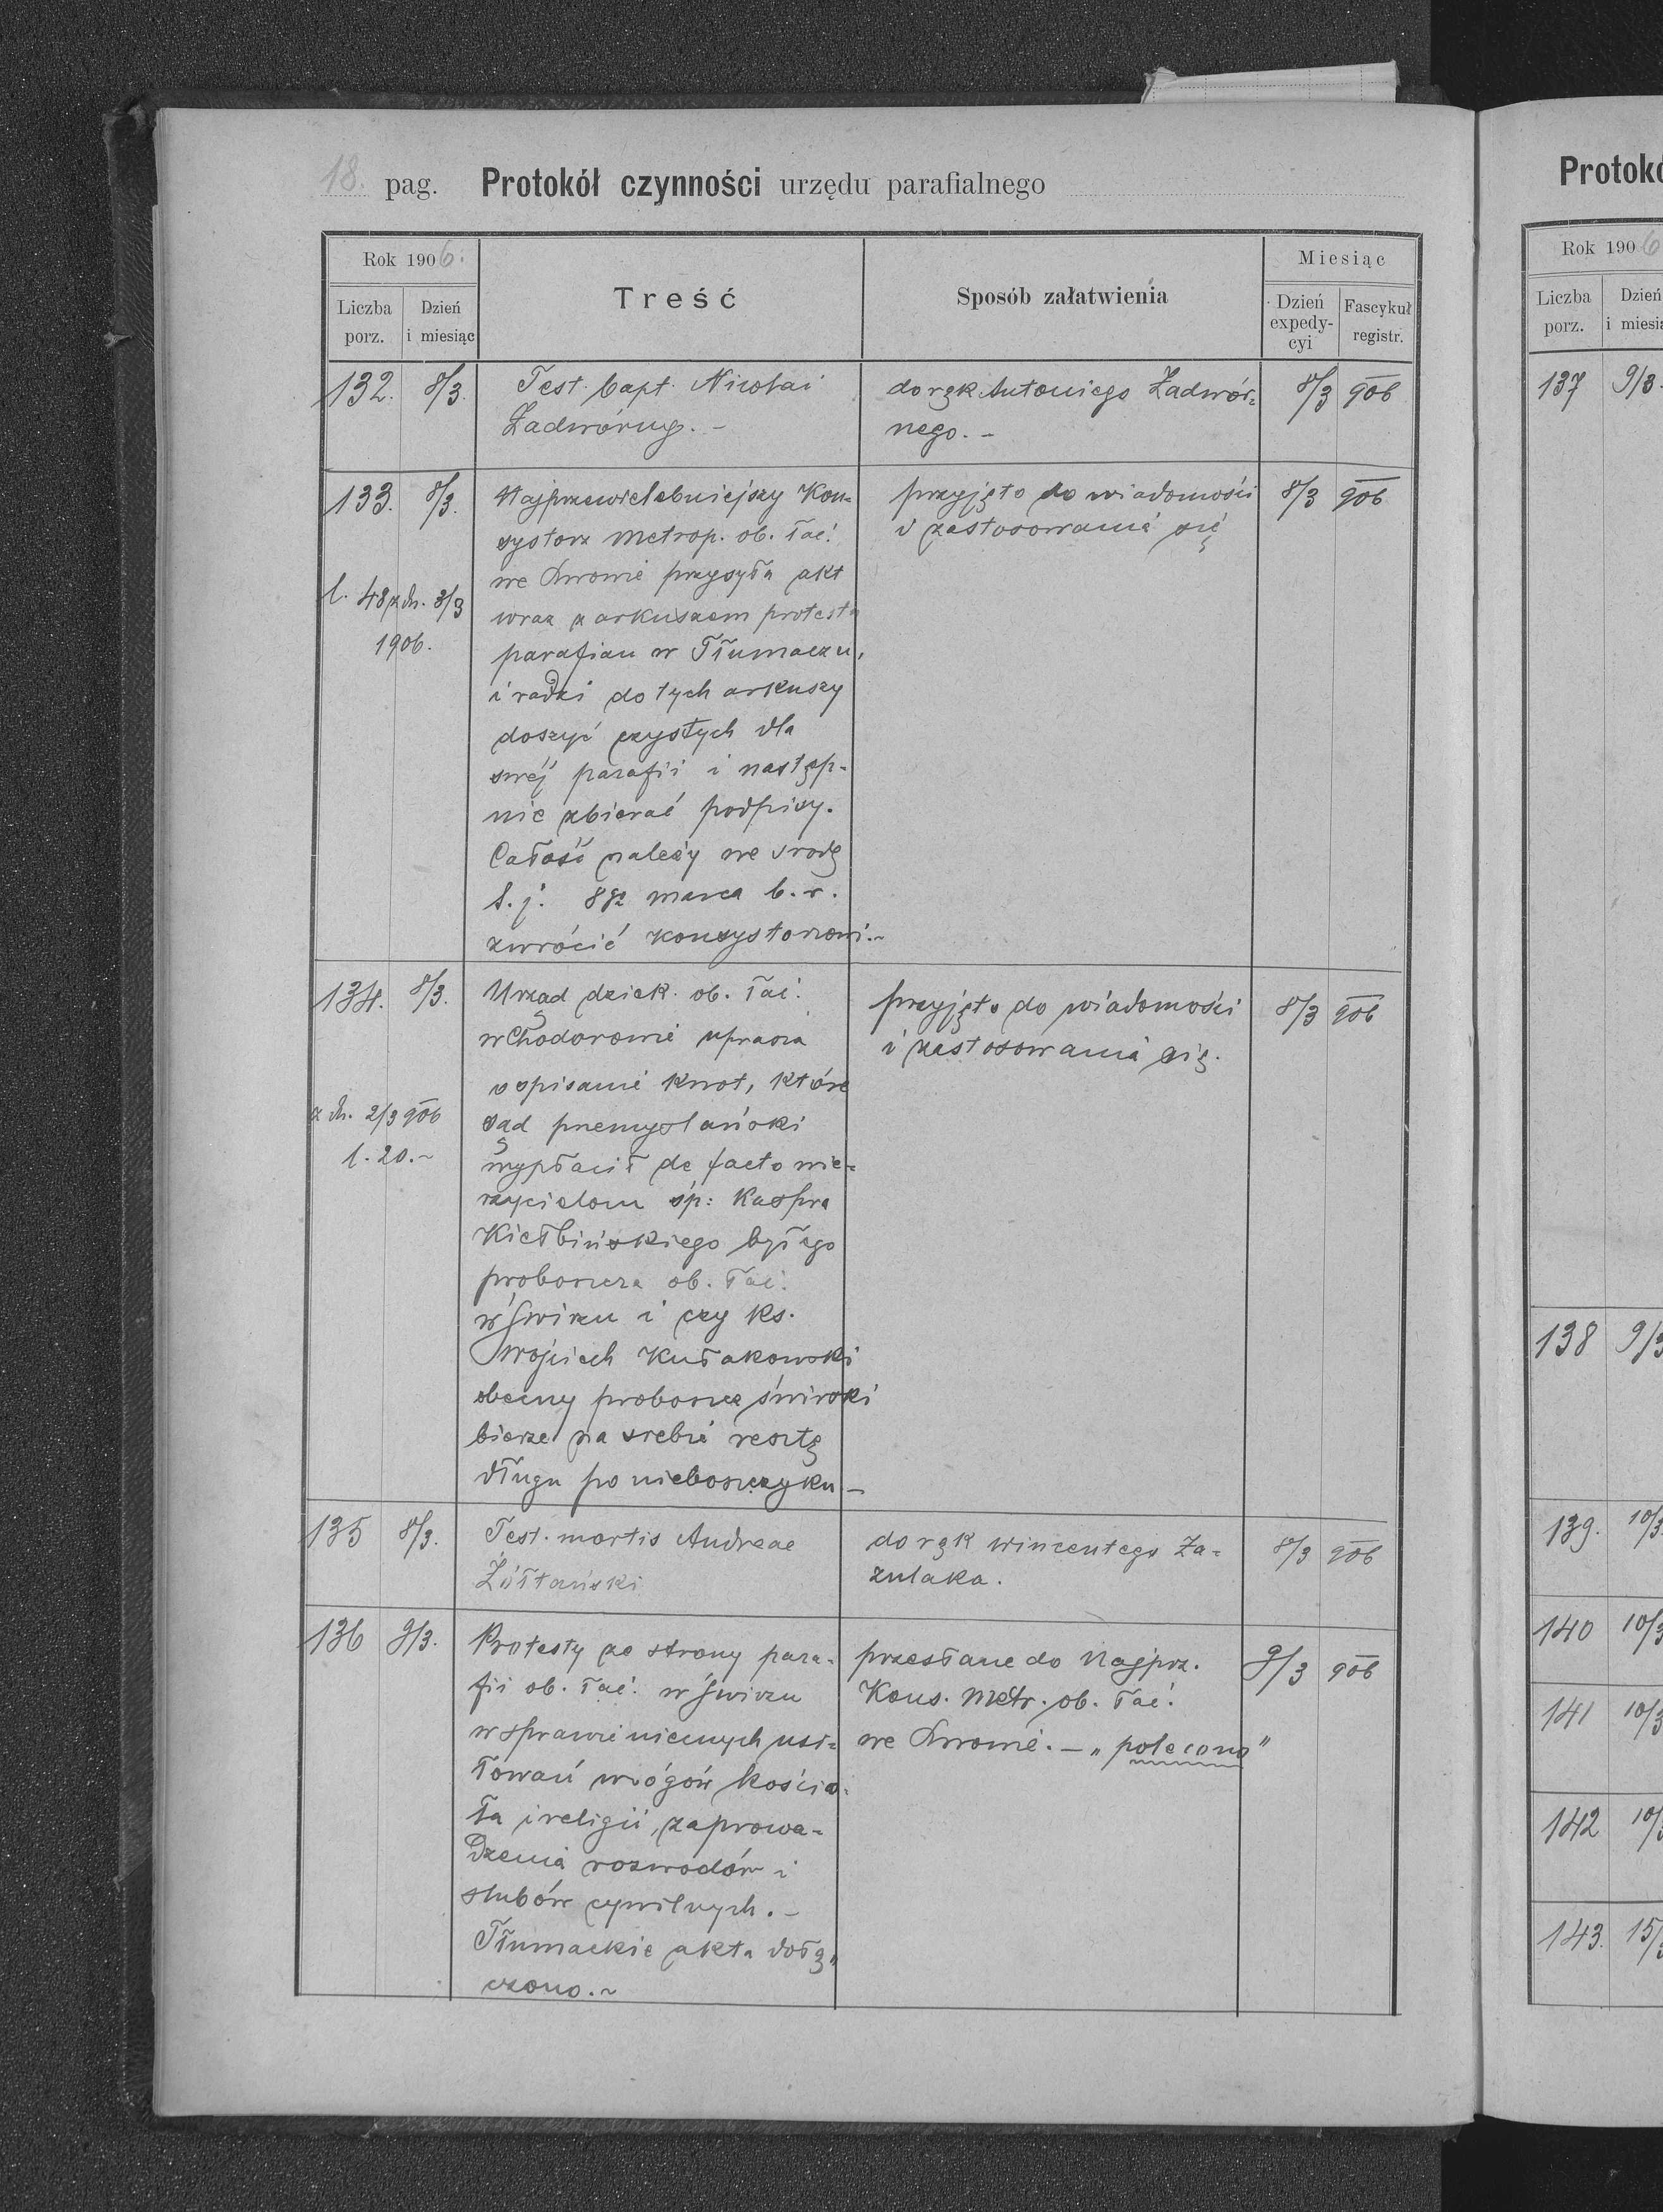 18. pag. Protokół czynności urzędu parafialnego
Rok 1906.
Liczba porz.
Dzień i miesiąc
Treść
Sposób załatwienia
Miesiąc
Dzień expedycyi
Fascykuł registr.
132. 8/3. Test. bapt. Nicolai
Zadwórny. –
do rąk Antoniego Zadwór=
nego. –
8/3 906
133. 8/3.
l. 48 z dn. 3/3
1906.
Najprzewielebniejszy Kon=
systorz Metrop. ob. łać.
we Lwowie przysyła akt
wraz z arkuszem protestu
parafian w Tłumaczu,
i radzi do tych arkuszy
doszyć czystych dla
swej parafii i następ-
nie zbierać podpisy.
Całość należy we środę
t. j. 8go marca b. r.
zwrócić Konsystorzowi. ~
przyjęto do wiadomości
i zastosowania się
8/3 906
134. 8/3.
z dn. 2/3 906
l. 20. ~
Urząd dziek. ob. łać.
w Chodorowie uprasza
o spisanie kwot, które
sąd przemyślański
wypłacił de facto wie=
rzycielom śp: Kaspra
Kiełbińskiego byłego
proboszcza ob. łać.
w Świrzu i czy ks.
Wojciech Kułakowski
obecny proboszcz świrski
bierze na siebie resztę
długu po nieboszczyku –
przyjęto do wiadomości
i zastosowania się.
8/3 906
135 8/3. Test. mortis Andreae
Żółtański
do rąk Wincentego Za=
zulaka.
8/3 906
136 9/3. Protesty ze strony para=
fii ob. łać. w Świrzu
w sprawie niecnych usi=
łowań wrogów kościo=
ła i religii, zaprowa=
dzenia rozwodów i
ślubów cywilnych. –
Tłumackie akta dołą„
czono. ~
przesłane do Najprz.
Kons. Metr. ob. łać.
we Lwowie. – „polecono"
9/3 906
Protokó
Rok 1906
Liczba porz.
Dzień i miesią
137 9/3.
138 9/3
139. 10/3.
140 10/3
141 10/3
142 10/3
143. 15/3